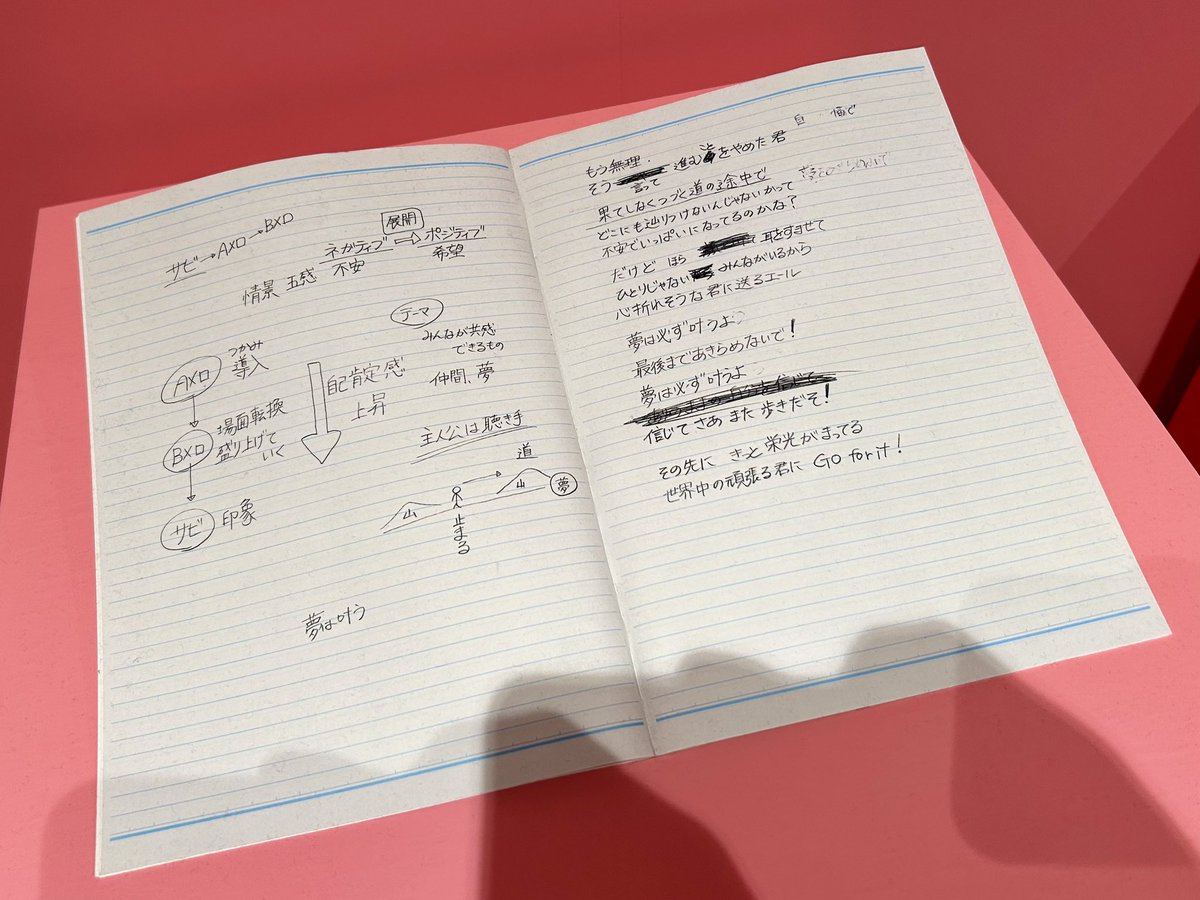 サビ→Aメロ→Bメロ
展開
ネガティブ⇨ポジティブ
不安
希望
情景 五感
テーマ
みんなが共感
できるもの
仲間、夢
Aメロ
つかみ
導入
自己肯定感
上昇
Bメロ
場面転換
盛り上げて
いく
サビ
印象
主人公は聴き手
道
山
山
夢
止まる
夢は叶う
もう無理.
そう 言って 進む をやめた君
果てしなくつづく道の途中で
どこにも辿りつけないんじゃないかって
不安でいっぱいになってるのかな?
だけど ほら 耳をすませて
ひとりじゃない みんながいるから
心折れそうな君に送るエール
夢は必ず叶うよ
最後まであきらめないで!
夢は必ず叶うよ
信じて さあ また 歩きだそ!
その先に きっと 栄光がまってる
世界中の頑張る君に Go for it!